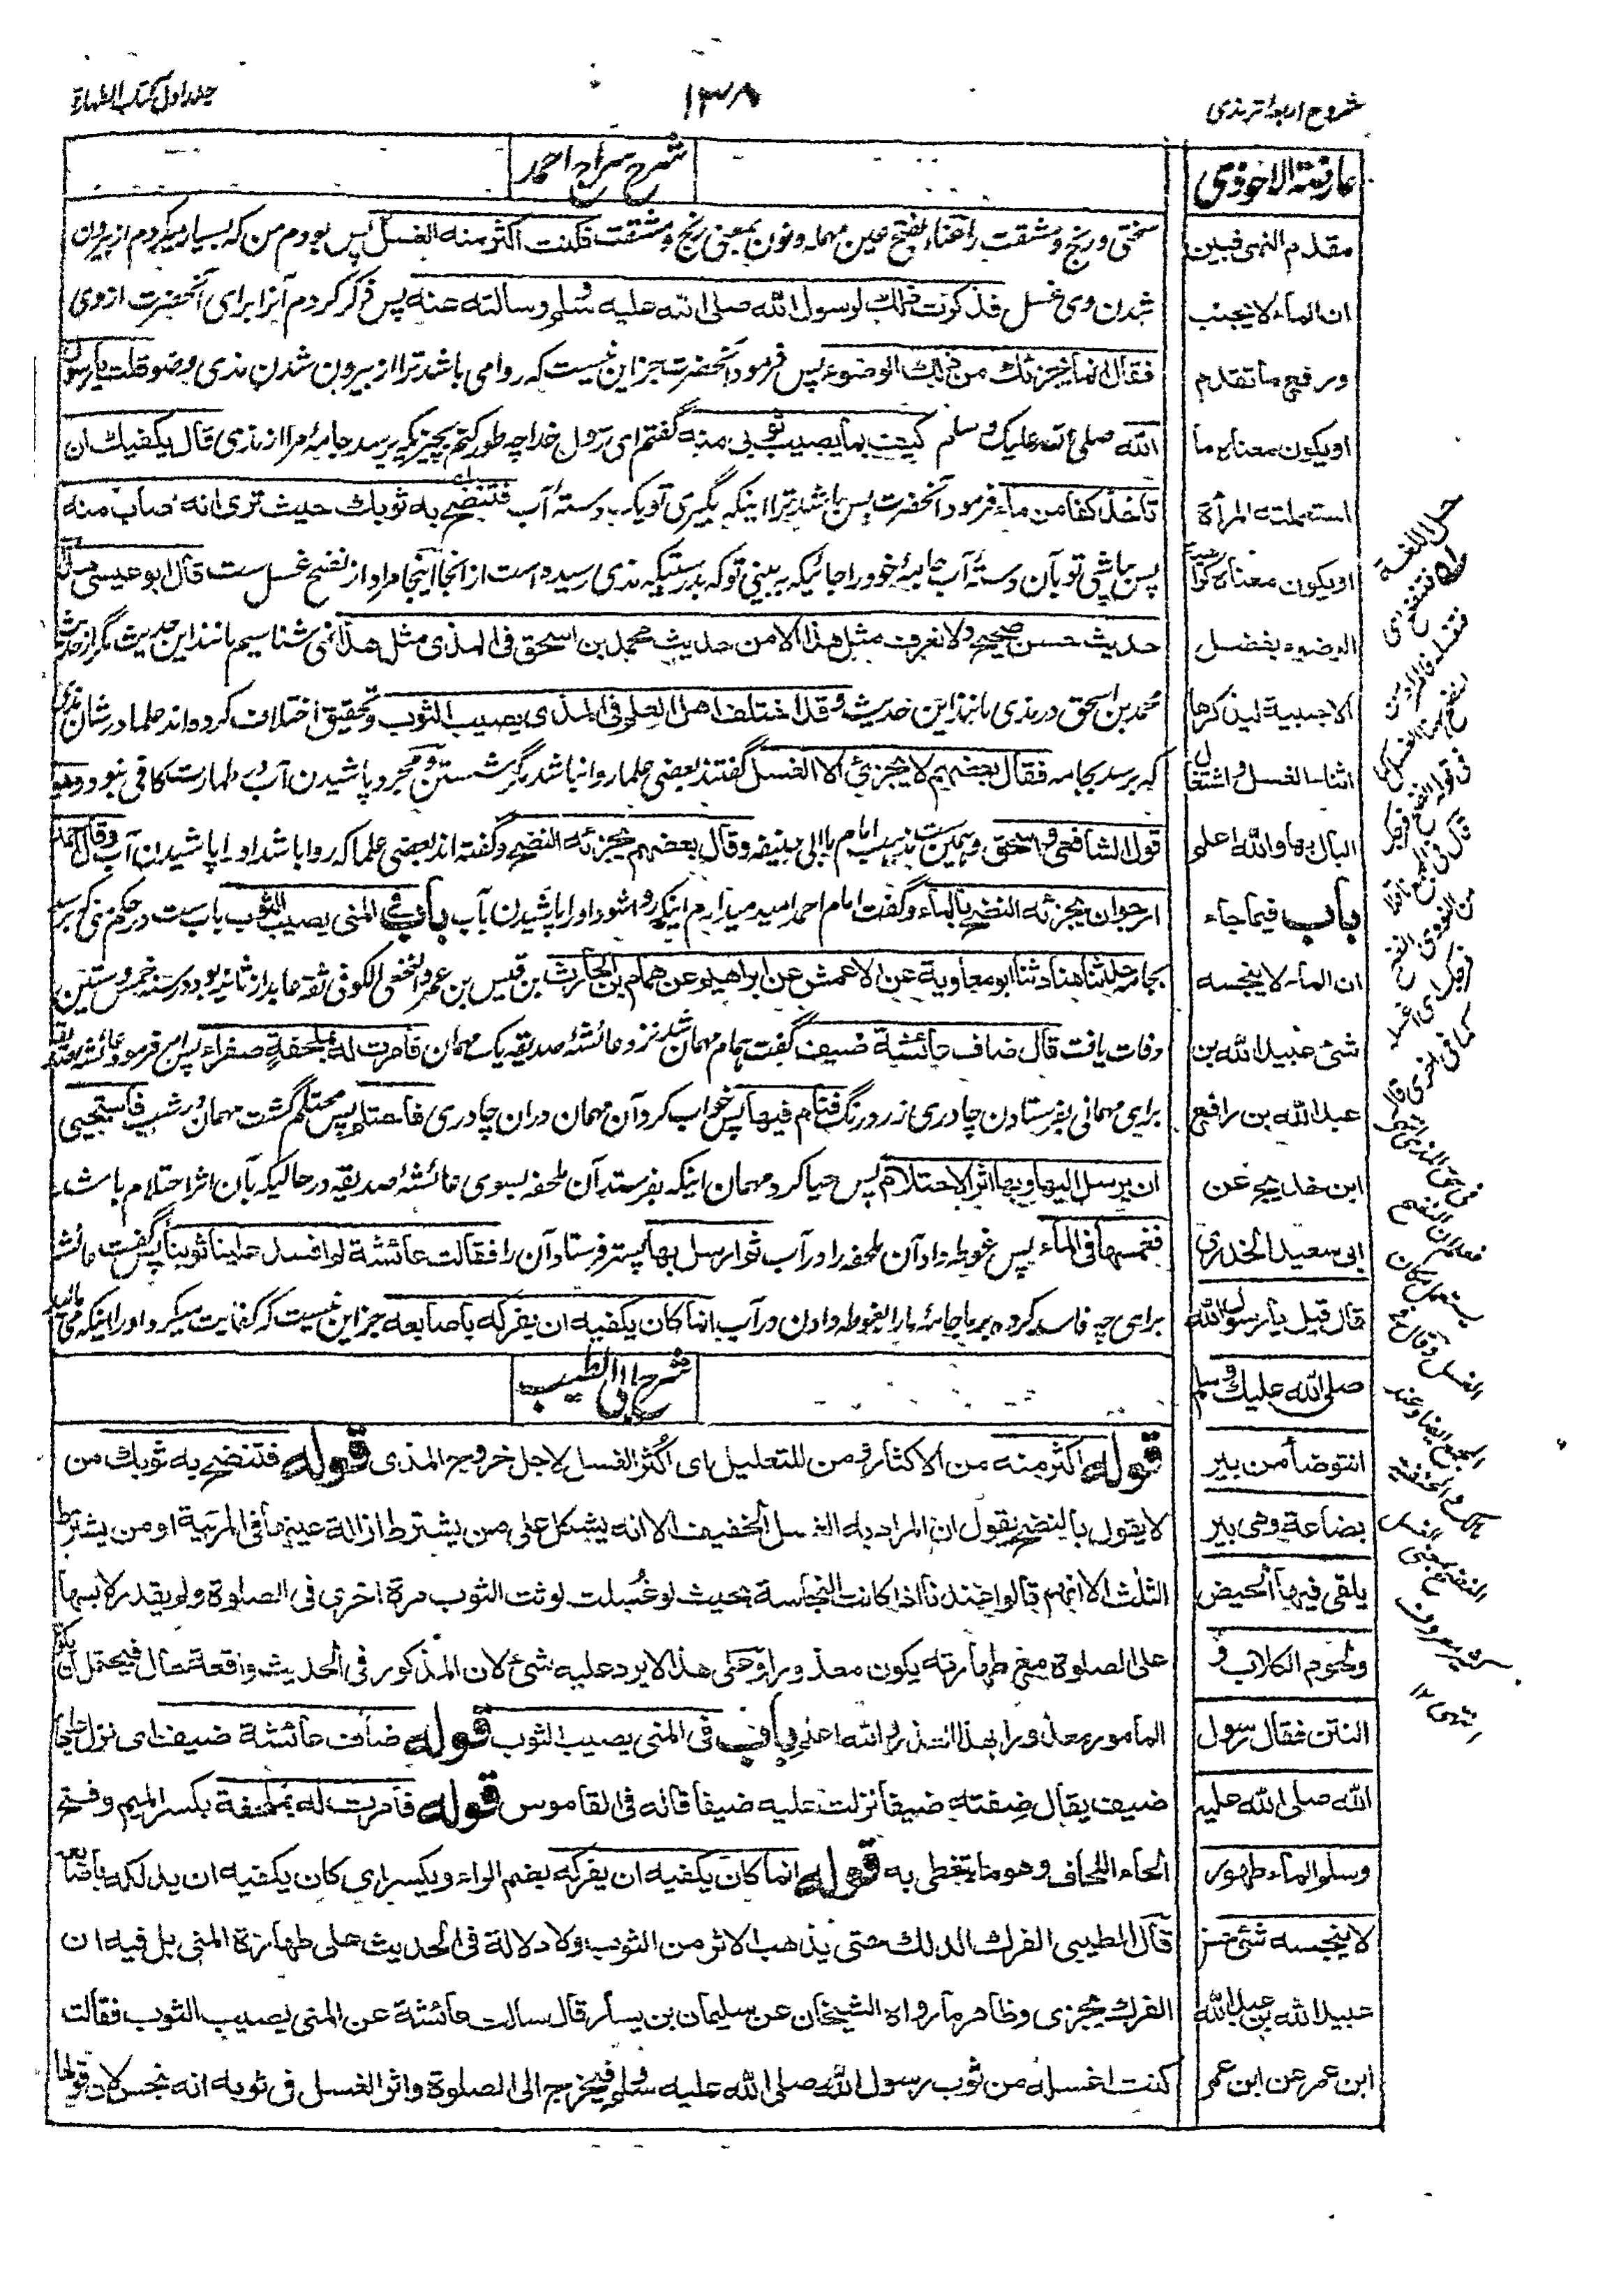 شروح اربعۂ ترمذی
١٣٨
جلد اول کتاب الطهارة
عارضة الاحوذی
مقدم النهی فبین
ان الماء لا یجنب
ورفع ما تقدم
او یکون معناه ما
استعملته المرأة
او یکون معناه کراهیة
الوضوء بفضل
الاجنبیة لیذکرها
اثناء الغسل واشتغال
البال بها والله اعلم
باب فیما جاء
ان الماء لا ینجسه
شئ عبید الله بن
عبد الله بن رافع
ابن خدیج عن
ابی سعید الخدری
قال قیل یا رسول الله
صلی الله علیک وسلم
انتوضأ من بیر
بضاعة وهی بیر
یلقی فیها الحیض
ولحوم الکلاب و
النتن فقال رسول
الله صلی الله علیه
وسلم الماء طهور
لا ینجسه شئ
عبید الله بن عبد الله
ابن عمر عن ابن عمر
شرح سراج احمد
سختی و رنج و مشقت را عناء بفتح عین مهمله و نون بمعنی رنج و مشقت فکنت اکثر منه الغسل پس بودم من که بسیار میکردم از بیرون
شدن وی غسل فذکرت ذلك لرسول الله صلی الله علیه وسلم وسالته عنه پس ذکر کردم آنرا برای آنحضرت از وی
فقال انما یجزئك من ذلك الوضوء پس فرمود آنحضرت جز این نیست که روا می باشد ترا از بیرون شدن مذی وضو قلت یا رسول
الله صلی الله علیک وسلم کیف بما یصیب ثوبی منه گفتم ای رسول خدا چه طور کنم بچیزیکه برسد جامۂ مرا از مذی قال یکفیك ان
تاخذ کفا من ماء فرمود آنحضرت بس باشد ترا اینکه بگیری تو یک دستۂ آب فتنضح به ثوبك حیث تری انه اصاب منه
پس بپاشی تو بآن دستۂ آب جامۂ خود را جائیکه به بینی تو که بدرستیکه مذی رسیده است از آنجا اینجا مراد از نضح غسل ست قال ابو عیسی هذا
حدیث حسن صحیح ولا نعرف مثل هذا الا من حدیث محمد بن اسحق فی المذی مثل هذا نمی شناسیم مانند این حدیث مگر از حدیث
محمد بن اسحق در مذی مانند این حدیث وقد اختلف اهل العلم فی المذی یصیب الثوب و تحقیق اختلاف کرده اند علما در شان مذی
که برسد بجامه فقال بعضهم لا یجزئ الا الغسل گفتند بعضی علما روا نباشد مگر شستن و مجرد پاشیدن آب در طهارت کافی نبود وهو
قول الشافعی واسحق وهمین ست مذهب امام ما ابی حنیفه وقال بعضهم یجزئه النضح وگفته اند بعضی علما که روا باشد او را پاشیدن آب وقال احمد
ارجو ان یجزئه النضح بالماء و گفت امام احمد امید میدارم اینکه روا شود او را پاشیدن بآب باب فی المنی یصیب الثوب باب ست در حکم منی که برسد
بجامه حدثنا هناد ثنا ابو معاویة عن الاعمش عن ابراهیم عن همام بن الحارث بن قیس بن عمرو النخعی الکوفی ثقه عابد از ثانیه بود در سنه خمس و ستین
وفات یافت قال ضاف عائشة ضیف گفت همام مهمان شد نزد عائشۂ صدیقه یک مهمان فامرت له بملحفة صفراء پس امر فرمود عائشه صدیقه
برای مهمانی بفرستادن چادری زرد رنگ فنام فیها پس خواب کرد آن مهمان دران چادری فاحتلم پس محتلم گشت مهمان در شب فاستحیی
ان یرسل الیها وبها اثر الاحتلام پس حیا کرد مهمان اینکه بفرستد آن ملحفه بسوی عائشۂ صدیقه در حالیکه بآن اثر احتلام باشد
فغمسها فی الماء پس غوطه داد آن ملحفه را در آب ثم ارسل بها پستر فرستاد آن را فقالت عائشة لم افسد علینا ثوبنا پس گفت عائشه
برای چه فاسد کرده بر ما جامۂ ما را بغوطه دادن در آب انما کان یکفیه ان یفرکه باصابعه جز این نیست که کفایت میکرد او را اینکه می مالید
شرح ابی الطیب
قوله اکثر منه من الاکثار و من للتعلیل ای اکثر الغسل لاجل خروج المذی قوله فتنضح به ثوبك من
لا یقول بالنضح یقول ان المراد به الغسل الخفیف الا انه یشکل علی من یشترط ازالة عینه ما فی المرئیة او من یشترط
الثلث الا انهم قالوا عندنا اذا کانت النجاسة بحیث لو غسلت لوثت الثوب مرة اخری فی الصلوة ولم یقدر لابسها
علی الصلوة مع طهارته یکون معذورا وعلی هذا لا یرد علیه شئ لان المذکور فی الحدیث واقعة حال فیحتمل ان یکون
المامور معذورا بهذا العذر والله اعلم باب فی المنی یصیب الثوب قوله ضاف عائشة ضیف ای نزل علیها
ضیف یقال ضفته ضیفا نزلت علیه ضیفا قاله فی القاموس قوله فامرت له بملحفة بکسر المیم وفتح
الحاء اللحاف وهو ما یتغطی به قوله انما کان یکفیه ان یفرکه بضم الراء ویکسر ای کان یکفیه ان یدلکه باصابعه
قال الطیبی الفرك الدلك حتی یذهب الاثر من الثوب ولا دلالة فی الحدیث علی طهارة المنی بل فیه ان
الفرك یجزی وظاهر ما رواه الشیخان عن سلیمان بن یسار قال سالت عائشة عن المنی یصیب الثوب فقالت
کنت اغسله من ثوب رسول الله صلی الله علیه وسلم فیخرج الی الصلوة واثر الغسل فی ثوبه انه نجس لان قولها
حل اللغة